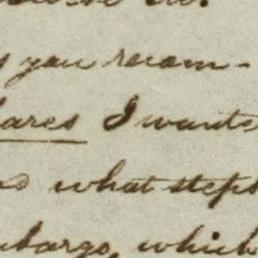 you recom-
ares I wante
what steps
bargo, which